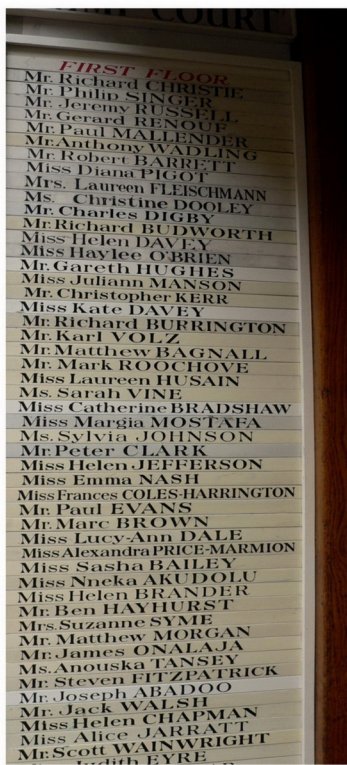 COURT
FIRST FLOOR
Mr. Richard CHRISTIE
Mr. Philip SINGER
Mr. Jeremy RUSSELL
Mr. Gerard RENOUF
Mr. Paul MALLENDER
Mr. Anthony WADLING
Mr. Robert BARRETT
Miss Diana PIGOT
Mrs. Laureen FLEISCHMANN
Ms. Christine DOOLEY
Mr. Charles DIGBY
Mr. Richard BUDWORTH
Miss Helen DAVEY
Miss Haylee O'BRIEN
Mr. Gareth HUGHES
Miss Juliann MANSON
Mr. Christopher KERR
Miss Kate DAVEY
Mr. Richard BURRINGTON
Mr. Karl VOLZ
Mr. Matthew BAGNALL
Mr. Mark ROOCHOVE
Miss Laureen HUSAIN
Ms. Sarah VINE
Miss Catherine BRADSHAW
Miss Margia MOSTAFA
Ms. Sylvia JOHNSON
Mr. Peter CLARK
Miss Helen JEFFERSON
Miss Emma NASH
Miss Frances COLES-HARRINGTON
Mr. Paul EVANS
Mr. Marc BROWN
Miss Lucy-Ann DALE
Miss Alexandra PRICE-MARMION
Miss Sasha BAILEY
Miss Nneka AKUDOLU
Miss Helen BRANDER
Mr. Ben HAYHURST
Mrs. Suzanne SYME
Mr. Matthew MORGAN
Mr. James ONALAJA
Ms. Anouska TANSEY
Mr. Steven FITZPATRICK
Mr. Joseph ABADOO
Mr. Jack WALSH
Miss Helen CHAPMAN
Miss Alice JARRATT
Mr. Scott WAINWRIGHT
Judith EYRE